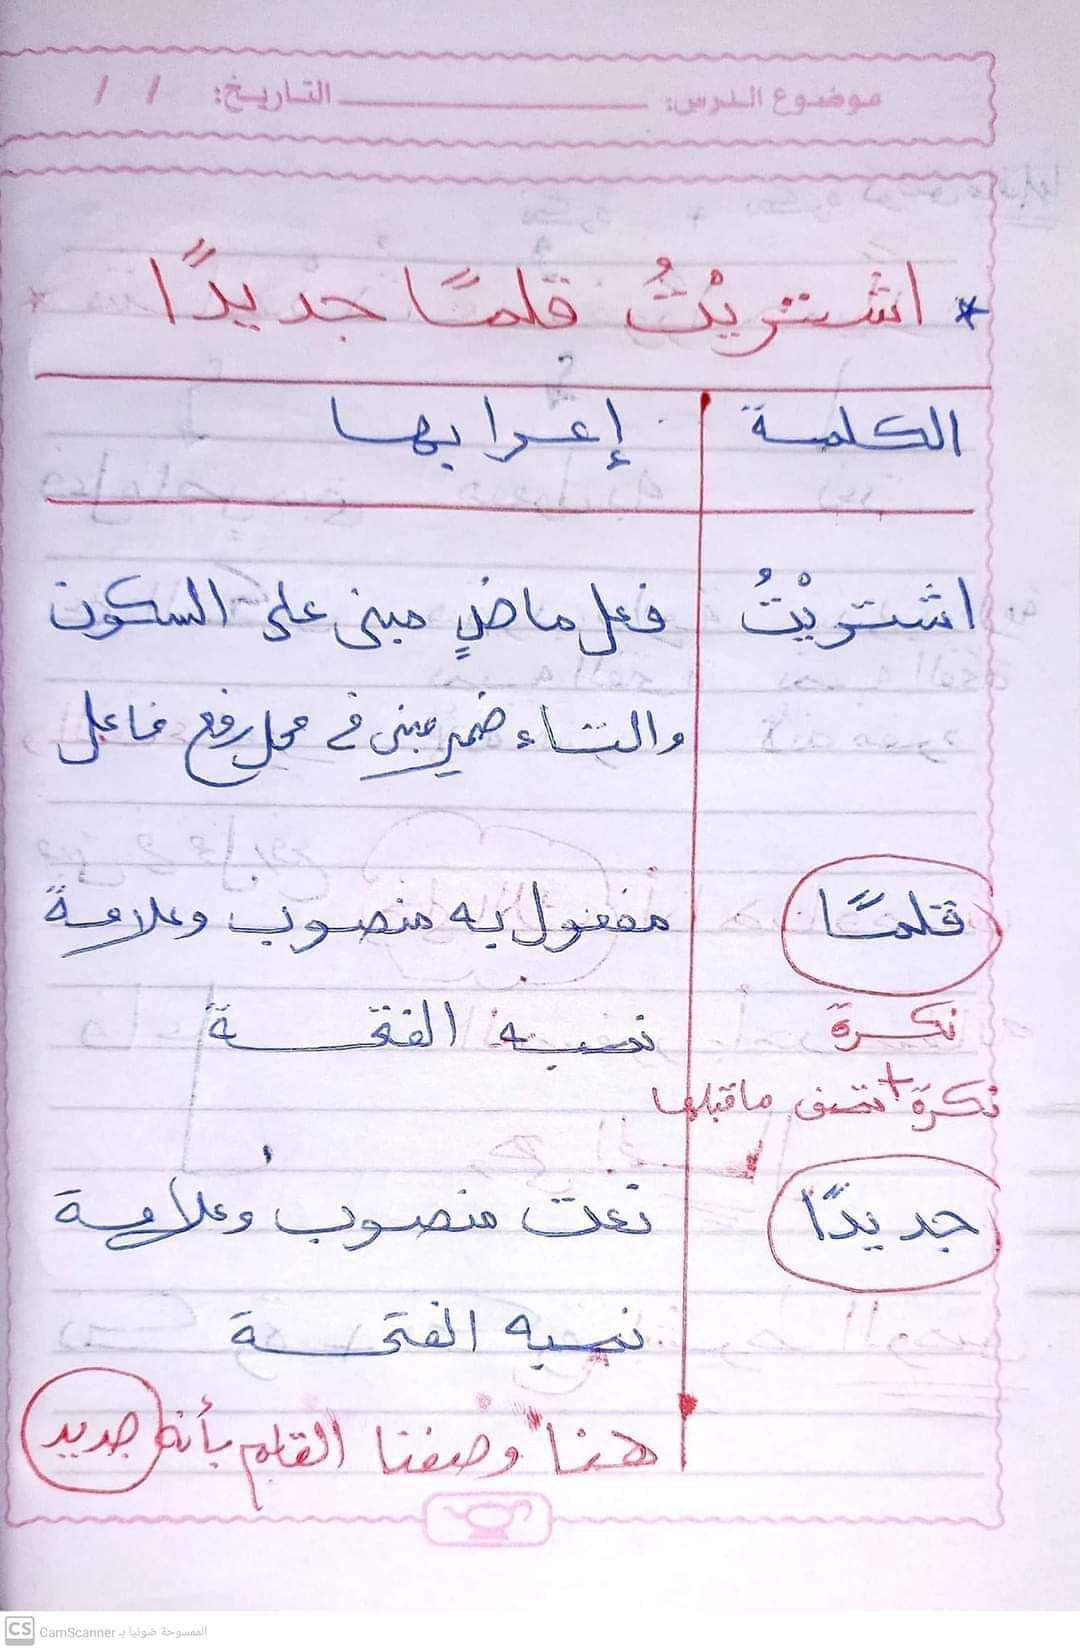 موضوع الدرس: التاريخ: / /
* اشتريْتُ قلمًا جديدًا
الكلمة إعرابها
اشتريْتُ فعل ماضٍ مبنى على السكون
والتاء ضمير مبنى فى محل رفع فاعل
قلمًا مفعول به منصوب وعلامة
نصبه الفتحة
نكرة
نكرة + تصف ماقبلها
جديدًا نعت منصوب وعلامة
نصبه الفتحة
هنا وصفنا القلم بأنه جديد
CS CamScanner الممسوحة ضوئيا بـ